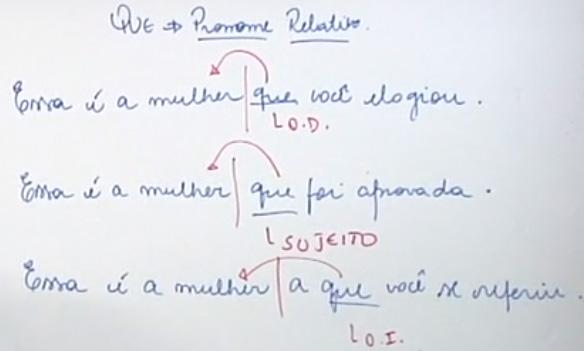 QUE → Pronome Relativo.
Essa é a mulher | que você elogiou.
↳ O.D.
Essa é a mulher | que foi aprovada.
↳ SUJEITO
Essa é a mulher | a que você se referiu.
↳ O.I.